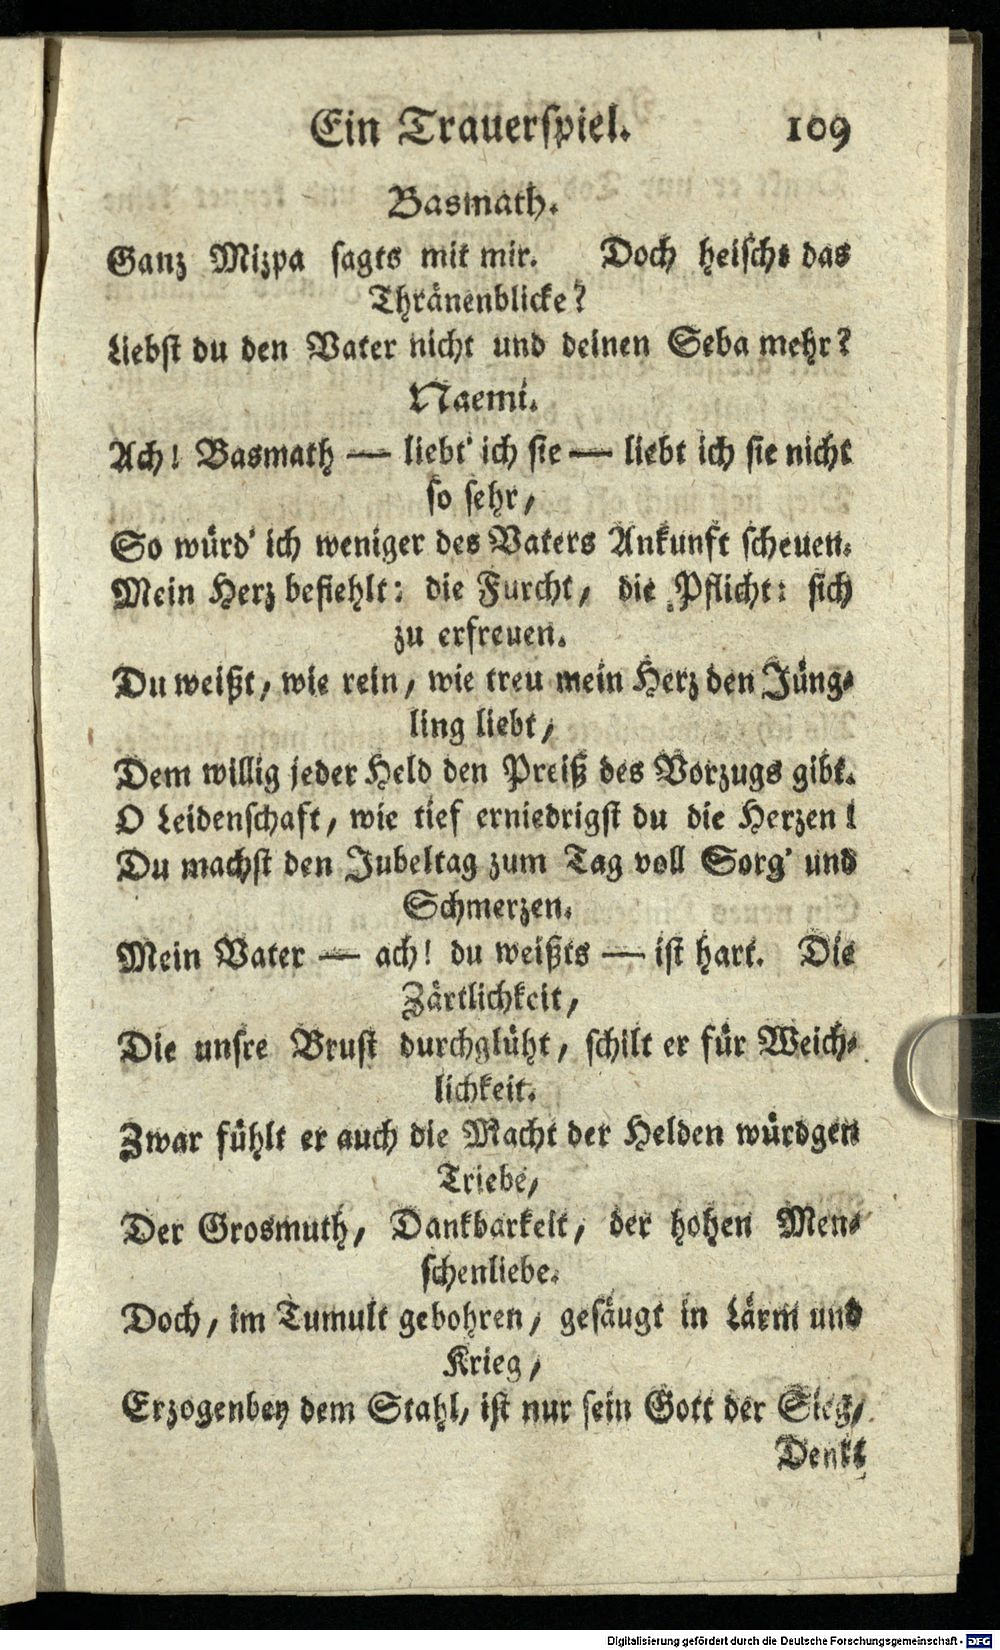 Ein Trauerspiel. 109
Basmath.
Ganz Mizpa sagts mit mir. Doch heischt das
Thränenblicke?
Liebst du den Vater nicht und deinen Seba mehr?
Naemi.
Ach! Basmath — liebt' ich sie — liebt ich sie nicht
so sehr,
So würd' ich weniger des Vaters Ankunft scheuen.
Mein Herz befiehlt: die Furcht, die Pflicht: sich
zu erfreuen.
Du weißt, wie rein, wie treu mein Herz den Jüng-
ling liebt,
Dem willig jeder Held den Preiß des Vorzugs gibt.
O Leidenschaft, wie tief erniedrigst du die Herzen!
Du machst den Jubeltag zum Tag voll Sorg' und
Schmerzen.
Mein Vater — ach! du weißts — ist hart. Die
Zärtlichkeit,
Die unsre Brust durchglüht, schilt er für Weich-
lichkeit.
Zwar fühlt er auch die Macht der Helden würdgen
Triebe,
Der Grosmuth, Dankbarkeit, der hohen Men-
schenliebe.
Doch, im Tumult gebohren, gesäugt in Lärm und
Krieg,
Erzogenbey dem Stahl, ist nur sein Gott der Sieg,
Denkt
Digitalisierung gefördert durch die Deutsche Forschungsgemeinschaft - DFG